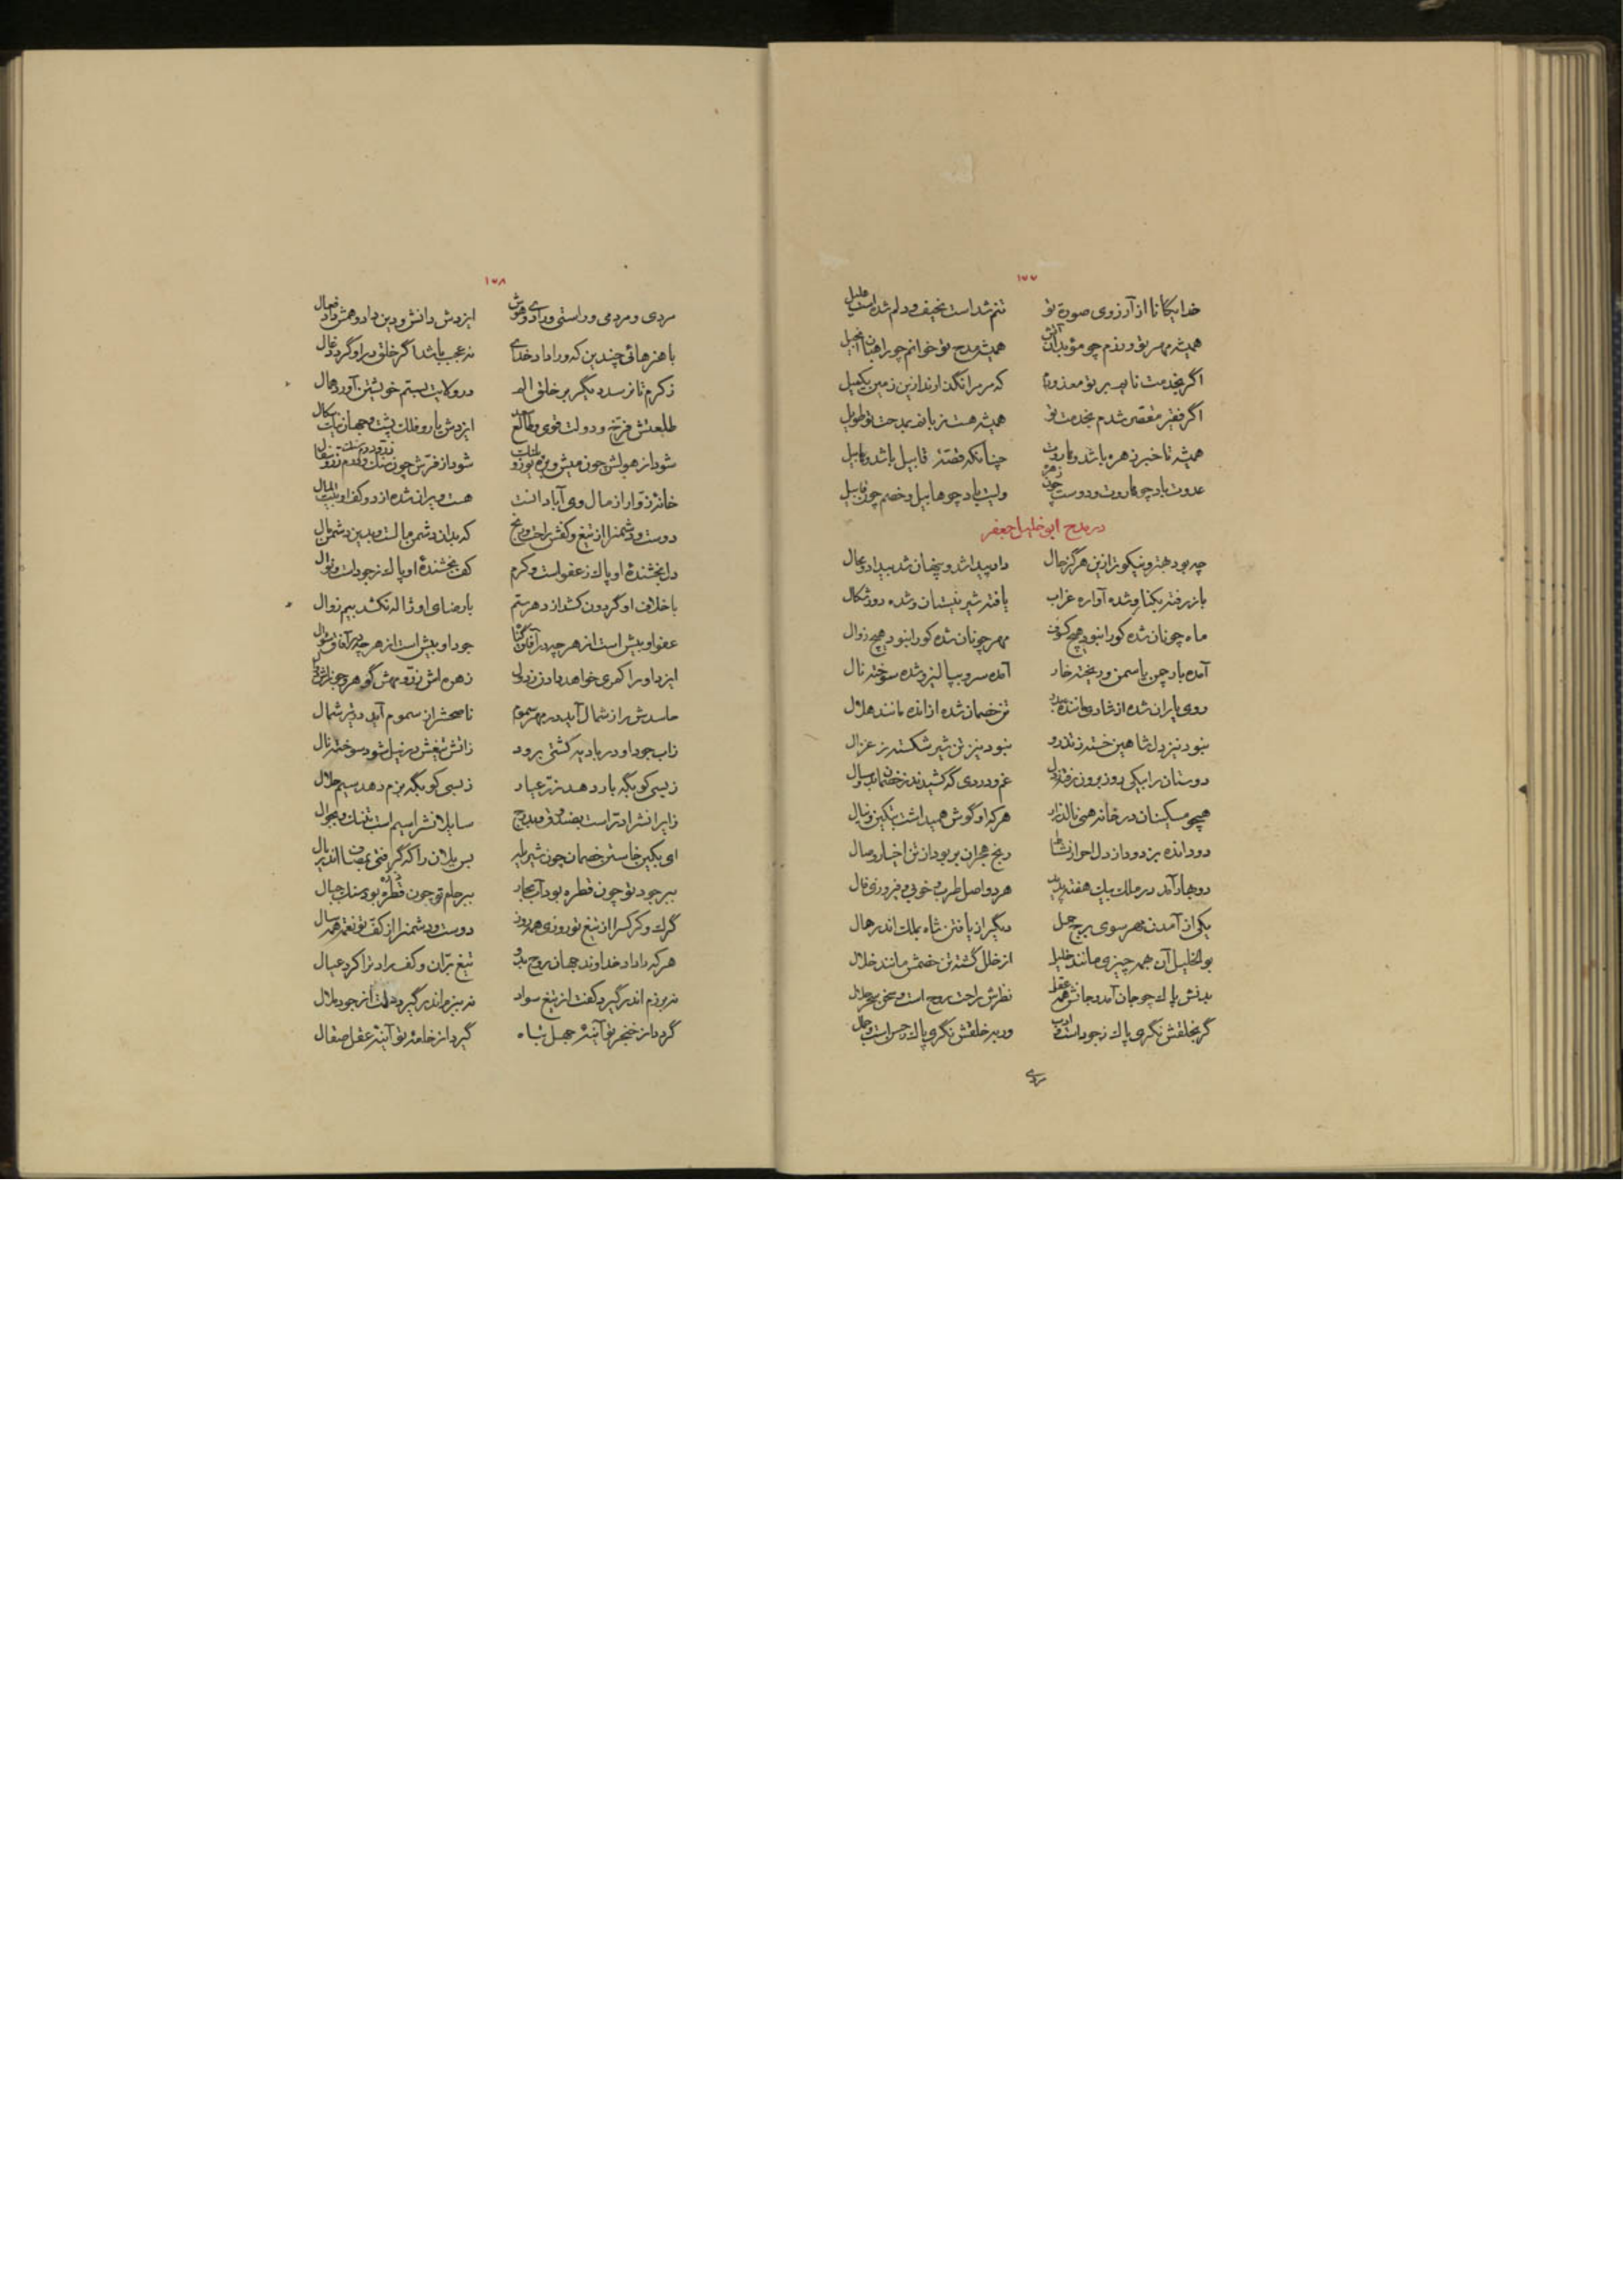 ۱۷۷
خدایگانا از آرزوی صورة تو تنم شداست نحیف و دلم شداست علیل
همیشه مهر تو ورزم چو مؤبدان آتش همیشه مدح تو خوانم چو راهبان انجیل
اگر بخدمت نایم بر تو معذورم که مر مرا نگذارند ازین زمین یکمیل
اگر فقیر مقصر شدم بخدمت تو همیشه هست زبانم بمدحت تو طویل
همیشه تا خبر زهره باشد و هاروت چنانکه قصهٔ قابیل باشد و هابیل
عدوت باد چو هاروت و دوست چون زهره ولیت باد چو هابیل و خصم چون قابیل
در مدح ابو خلیل جعفر
چه بود هنر و نیکوتر ازین هرگز حال داد پیدا شد و پنهان شد بیداد و محال
باز رفته بکنار و شده آواره غراب یافته شیر نیستان و شده دور شکال
ماه چونان شده کورا نبود هیچ کسوف مهر چونان شده کورا نبود هیچ زوال
آمده باد چمن یاسمن و ریخته خار آمده سرو بپالیز و شده سوخته نال
روی یاران شده از شادی مانندهٔ بدر تن خصمان شده از انده مانند هلال
نبود نیز دل شاهین خسته ز تذرو نبود نیز تن شیر شکسته ز غزال
دوستان را بیکی روز برون رفت ز دل غم و دردی که کشیدند ز خصمان بسال
همچو مسکینان در خانه همی نالد زار هرکه او گوش همیداشت بتکین و ینال
دود انده بزدود از دل احرار نشاط رنج هجران بربود از تن اخیار وصال
دو بهار آمد در ملک بیک هفته پدید هر دو اصل طرب و خوبی و فیروزی فال
یکی از آمدن مهر سوی برج حمل دیگر از یافتن شاه بملک اندر هال
بوالخلیل آن همه چیزی مانند خلیل از خلل گشته تن خصمش مانند خلال
بدنش پاک چو جان آمد و جانش همه عقل نظرش راحت روح است و سخن سحر حلال
گر بخلقش نگری پاک ز جود است و ادب ور بر خلقش نگری پاک ز حسن است و جمال
مردی
۱۷۸
مردی و مردمی و راستی و رادی و هوش ایزدش دانش و دین داد و همش داد فعال
با هنرهائی چندین که ورا داد خدای نه عجب باشد اگر خلق ورا گردد عال
ز کرم تا نرسد دیگر بر خلق الم درد ولایت بستم خویشتن آورد همال
طلعتش فرخ و دولت قوی و طالع سعد ایزدش یار و فلک پشت و جهان نیک سگال
شود از هولش چون میش و بره یوز و پلنگ شود از فرش چون سنگ و گهر زر و سفال
خانهٔ زوار از مال وی آباد است هست ویران شده از دو کف او بیت المال
دوست و دشمن را از تیغ و کفش راحت و رنج که بدان دشمن مالست و بدین دشمن مال
دل بخشندهٔ او پاک ز عفو است و کرم کف بخشندهٔ او پاک ز جود است و نوال
با خلاف او گردون کشد از دهر ستم با رضای او ژاله نکشد بیم زوال
عفو او بیش است از هرچه در آفاق گناه جود او بیش است از هرچه در آفاق سؤال
ایزد او را گهری خواهد دادن ز زمین
حاسدش را ز شمال آید در مهر سموم ناصحش را ز سموم آید در تیر شمال
ز آب جود او در بادیه کشتی برود ز آتش تیغش در نیل شود سوخته نال
ز بسی کو بگه بار دهد زر عیار ز بسی کو بگه بزم دهد سیم حلال
زایرانش را در است بصندوق و بدرج سایلانش را سیم است بتنگ و بجوال
ای بکین خاستن خصمان چون شیر یله بس یلان را که گرفتی بمصاف اندر یال
بر جود تو چون قطره بود آب بحار بر حلم تو چون ذره بود سنگ جبال
گرگ و کرکس را از تیغ تو روزی همه روز دوست و دشمن را از کف تو نعمت همه سال
هرکه را داد خداوند جهان روح بدو تیغ بران و کف راد ترا کرد عیال
نه برزم اندر گیرد کفت از تیغ سواد نه ببزم اندر گیرد دلت از جود ملال
گردد از خنجر تو آینهٔ جهل تباه گیرد از خامهٔ تو آینهٔ عقل صقال